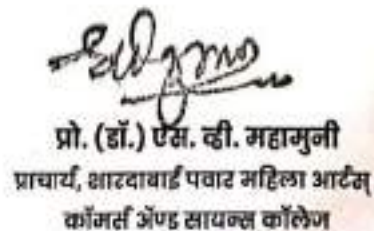 प्रो. (डॉ.) एस. व्ही. महामुनी
प्राचार्य, शारदाबाई पवार महिला आर्टस्
कॉमर्स ॲण्ड सायन्स कॉलेज